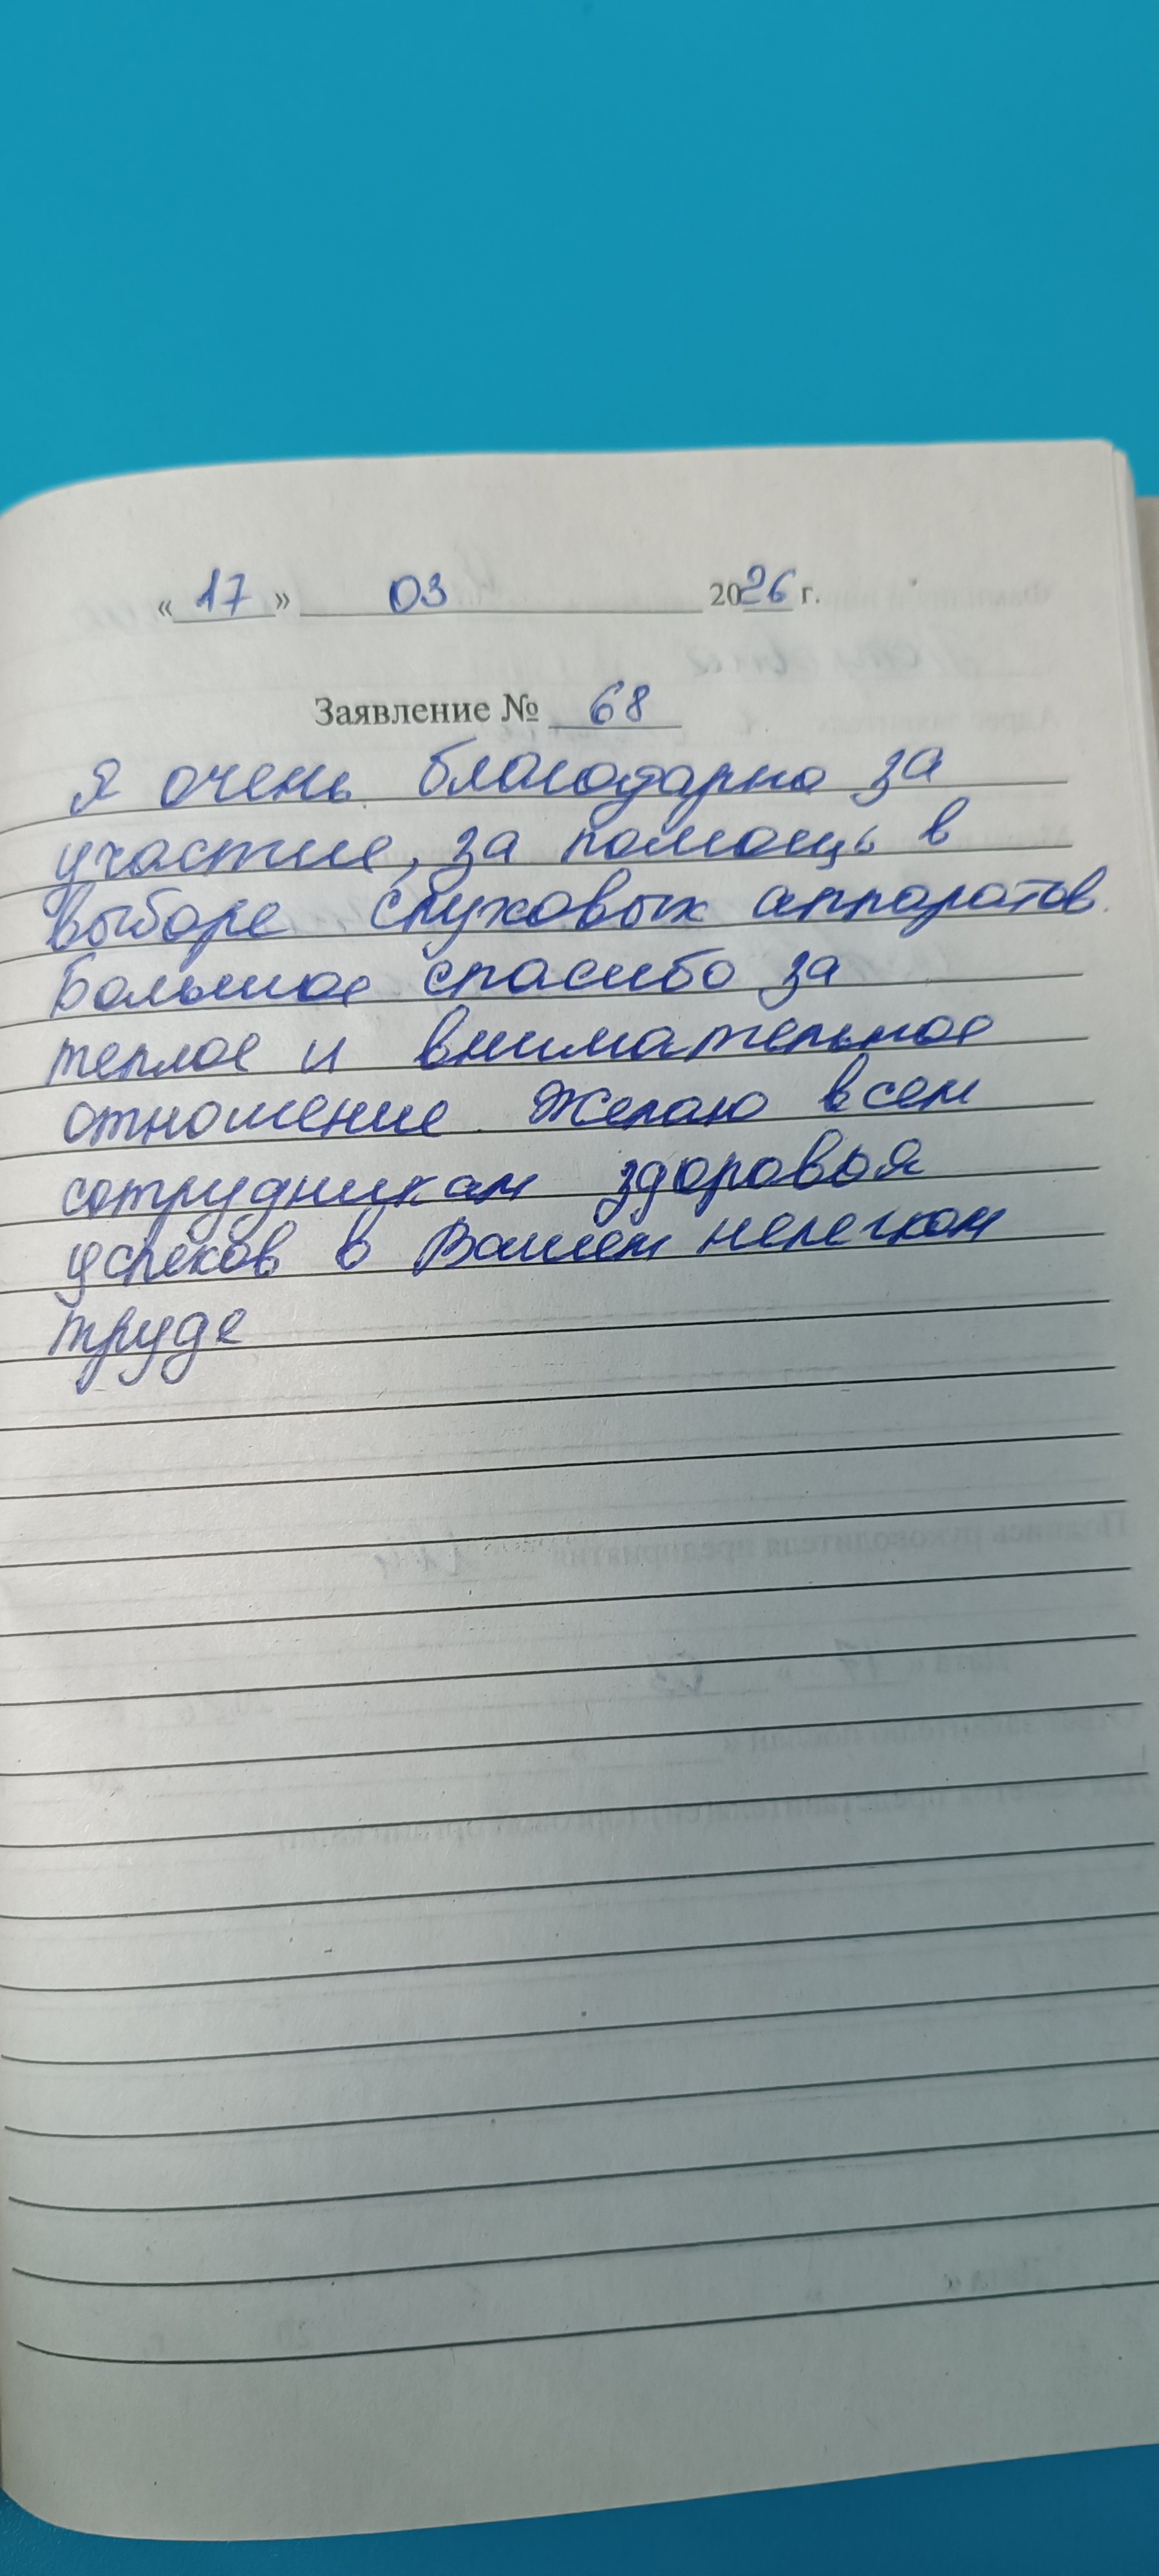 «17» 03 2026 г.
Заявление № 68
Я очень благодарна за
участие, за помощь в
выборе слуховых аппаратов.
Большое спасибо за
теплое и внимательное
отношение. Желаю всем
сотрудникам здоровья
успехов в Вашем нелегком
труде